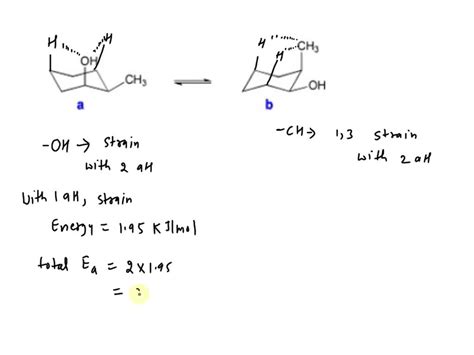 H H
OH
CH3
a
H CH3
H
OH
b
-OH → strain
with 2 aH
-CH → 1,3 strain
with 2 aH
With 1 aH, strain
Energy = 1.95 KJ/mol
total Ea = 2 × 1.95
= 3